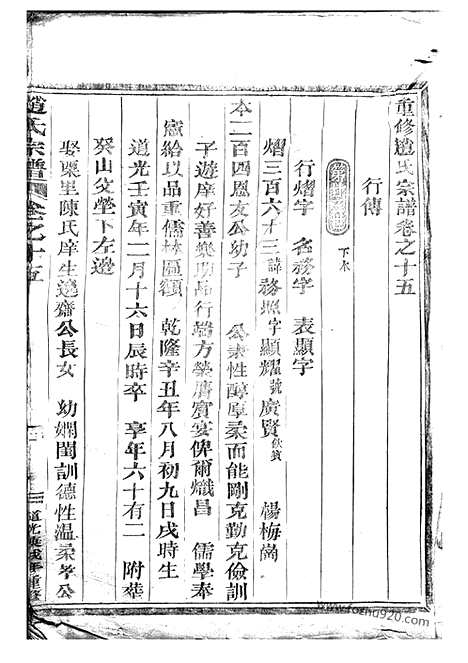 重修趙氏宗譜卷之十五
行傳
下木
行熠字 名務字 表顯字
熠三百六十三諱務照字顯耀號廣賢 楊梅崗
本二百四恩友公幼子 公秉性醇厚柔而能剛克勤克儉訓
子遊庠好善樂助品行端方榮膺賓宴俾爾熾昌 儒學奉
憲給以品重儒林匾額 乾隆辛丑年八月初九日戌時生
道光壬寅年二月十六日辰時卒 享年六十有二 附葬
癸山父塋下左邊
娶栗里陳氏庠生遠齋公長女 幼嫻閨訓德性溫柔孝公
趙氏宗譜 卷之十五
道光庚戌年重修
www.fozhu920.com